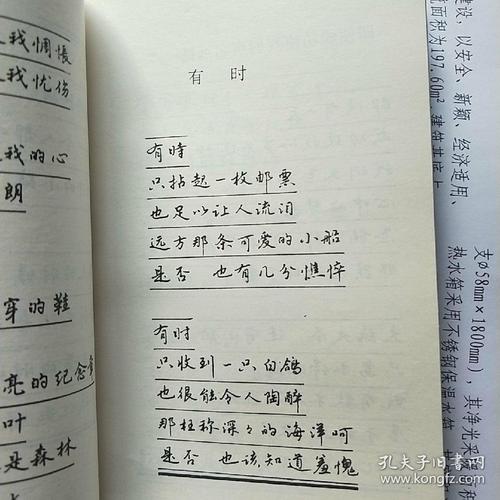 我惆怅
我忧伤
我的心
朗
穿的鞋
亮的纪念章
叶
是森林
有时
有時
只拈起一枚邮票
也足以让人流泪
远方那条可爱的小船
是否 也有几分憔悴
有時
只收到一只白鸽
也很能令人陶醉
那枉称深々的海洋呵
是否 也该知道羞愧
建设,以安全、新颖、经济适用、
面积为197.60m²,建筑基底
支φ58mm×1800mm),其净光采
热水箱采用不锈钢保温水箱
孔夫子旧书网
kongfz.com